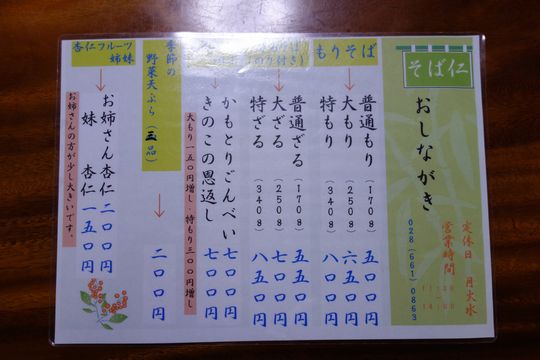 そば仁
おしながき
定休日 月火水
営業時間
028(661)0863
もりそば
普通もり(170g) 五〇〇円
大もり(250g) 六五〇円
特もり(340g) 八〇〇円
(のり付き)
普通ざる(170g) 五五〇円
大ざる(250g) 七〇〇円
特ざる(340g) 八五〇円
かもとりごんべい 七〇〇円
きのこの恩返し 七〇〇円
大もり一五〇円増し・特もり三〇〇円増し
季節の
野菜天ぷら(三品)
二〇〇円
杏仁フルーツ
姉妹
お姉さん杏仁 二〇〇円
妹 杏仁 一五〇円
お姉さんの方が少し大きいです。